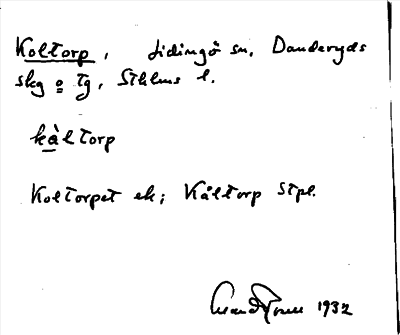 Koltorp, Lidingö sn, Danderyds
skg o tg, Sthlms l.
kåltorp
Koltorpet ek; Kåltorp stpl.
1932